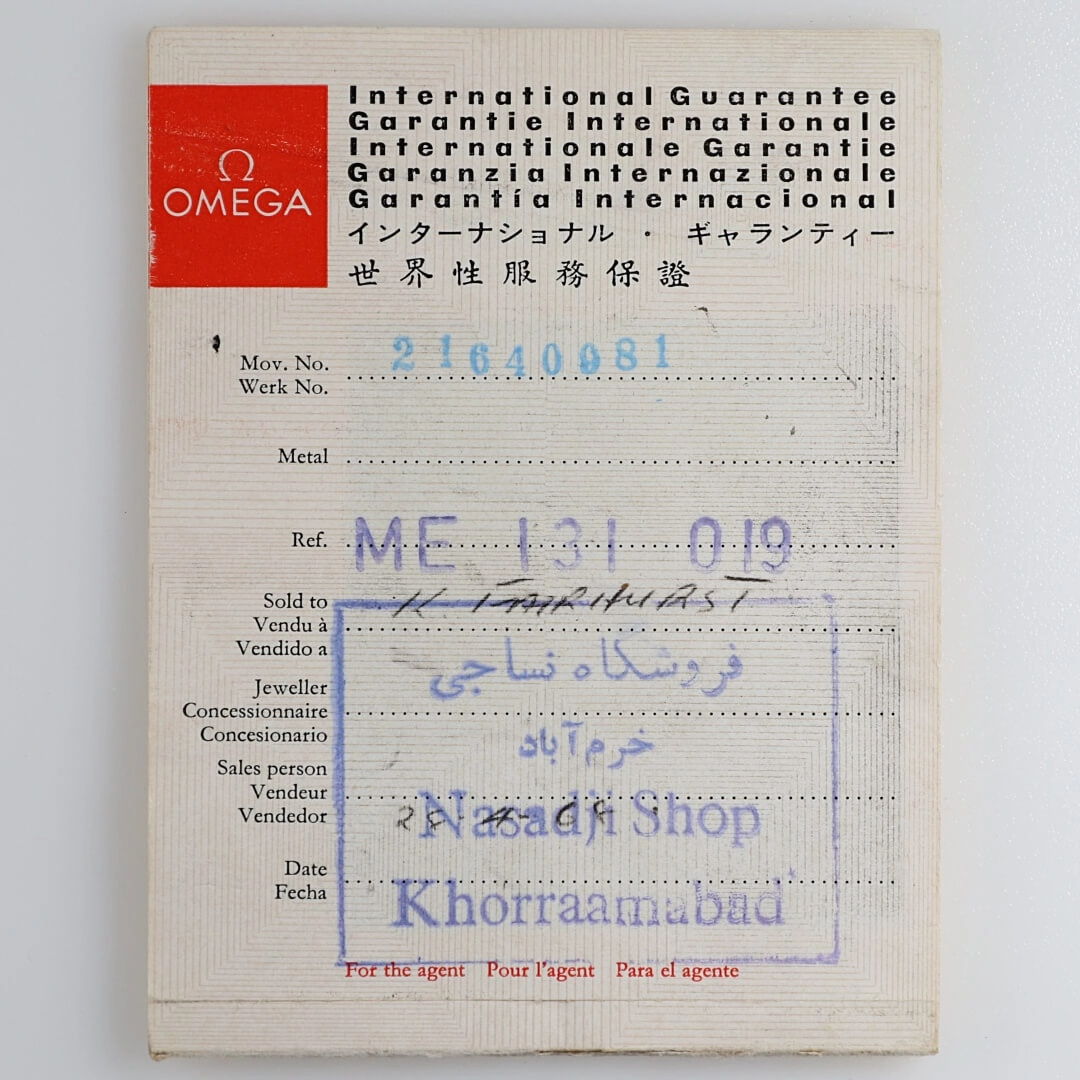 Ω
OMEGA
International Guarantee
Garantie Internationale
Internationale Garantie
Garanzia Internazionale
Garantía Internacional
インターナショナル ・ ギャランティー
世界性服務保證
Mov. No. 21640981
Werk No.
Metal
Ref. ME 131 019
Sold to K. FAIRHURST
Vendu à
Vendido a
فروشگاه نساجی
Jeweller
Concessionnaire
Concesionario
خرم آباد
Sales person
Vendeur
Vendedor 28-4-68
Nasadji Shop
Date
Fecha
Khorraamabad
For the agent Pour l'agent Para el agente